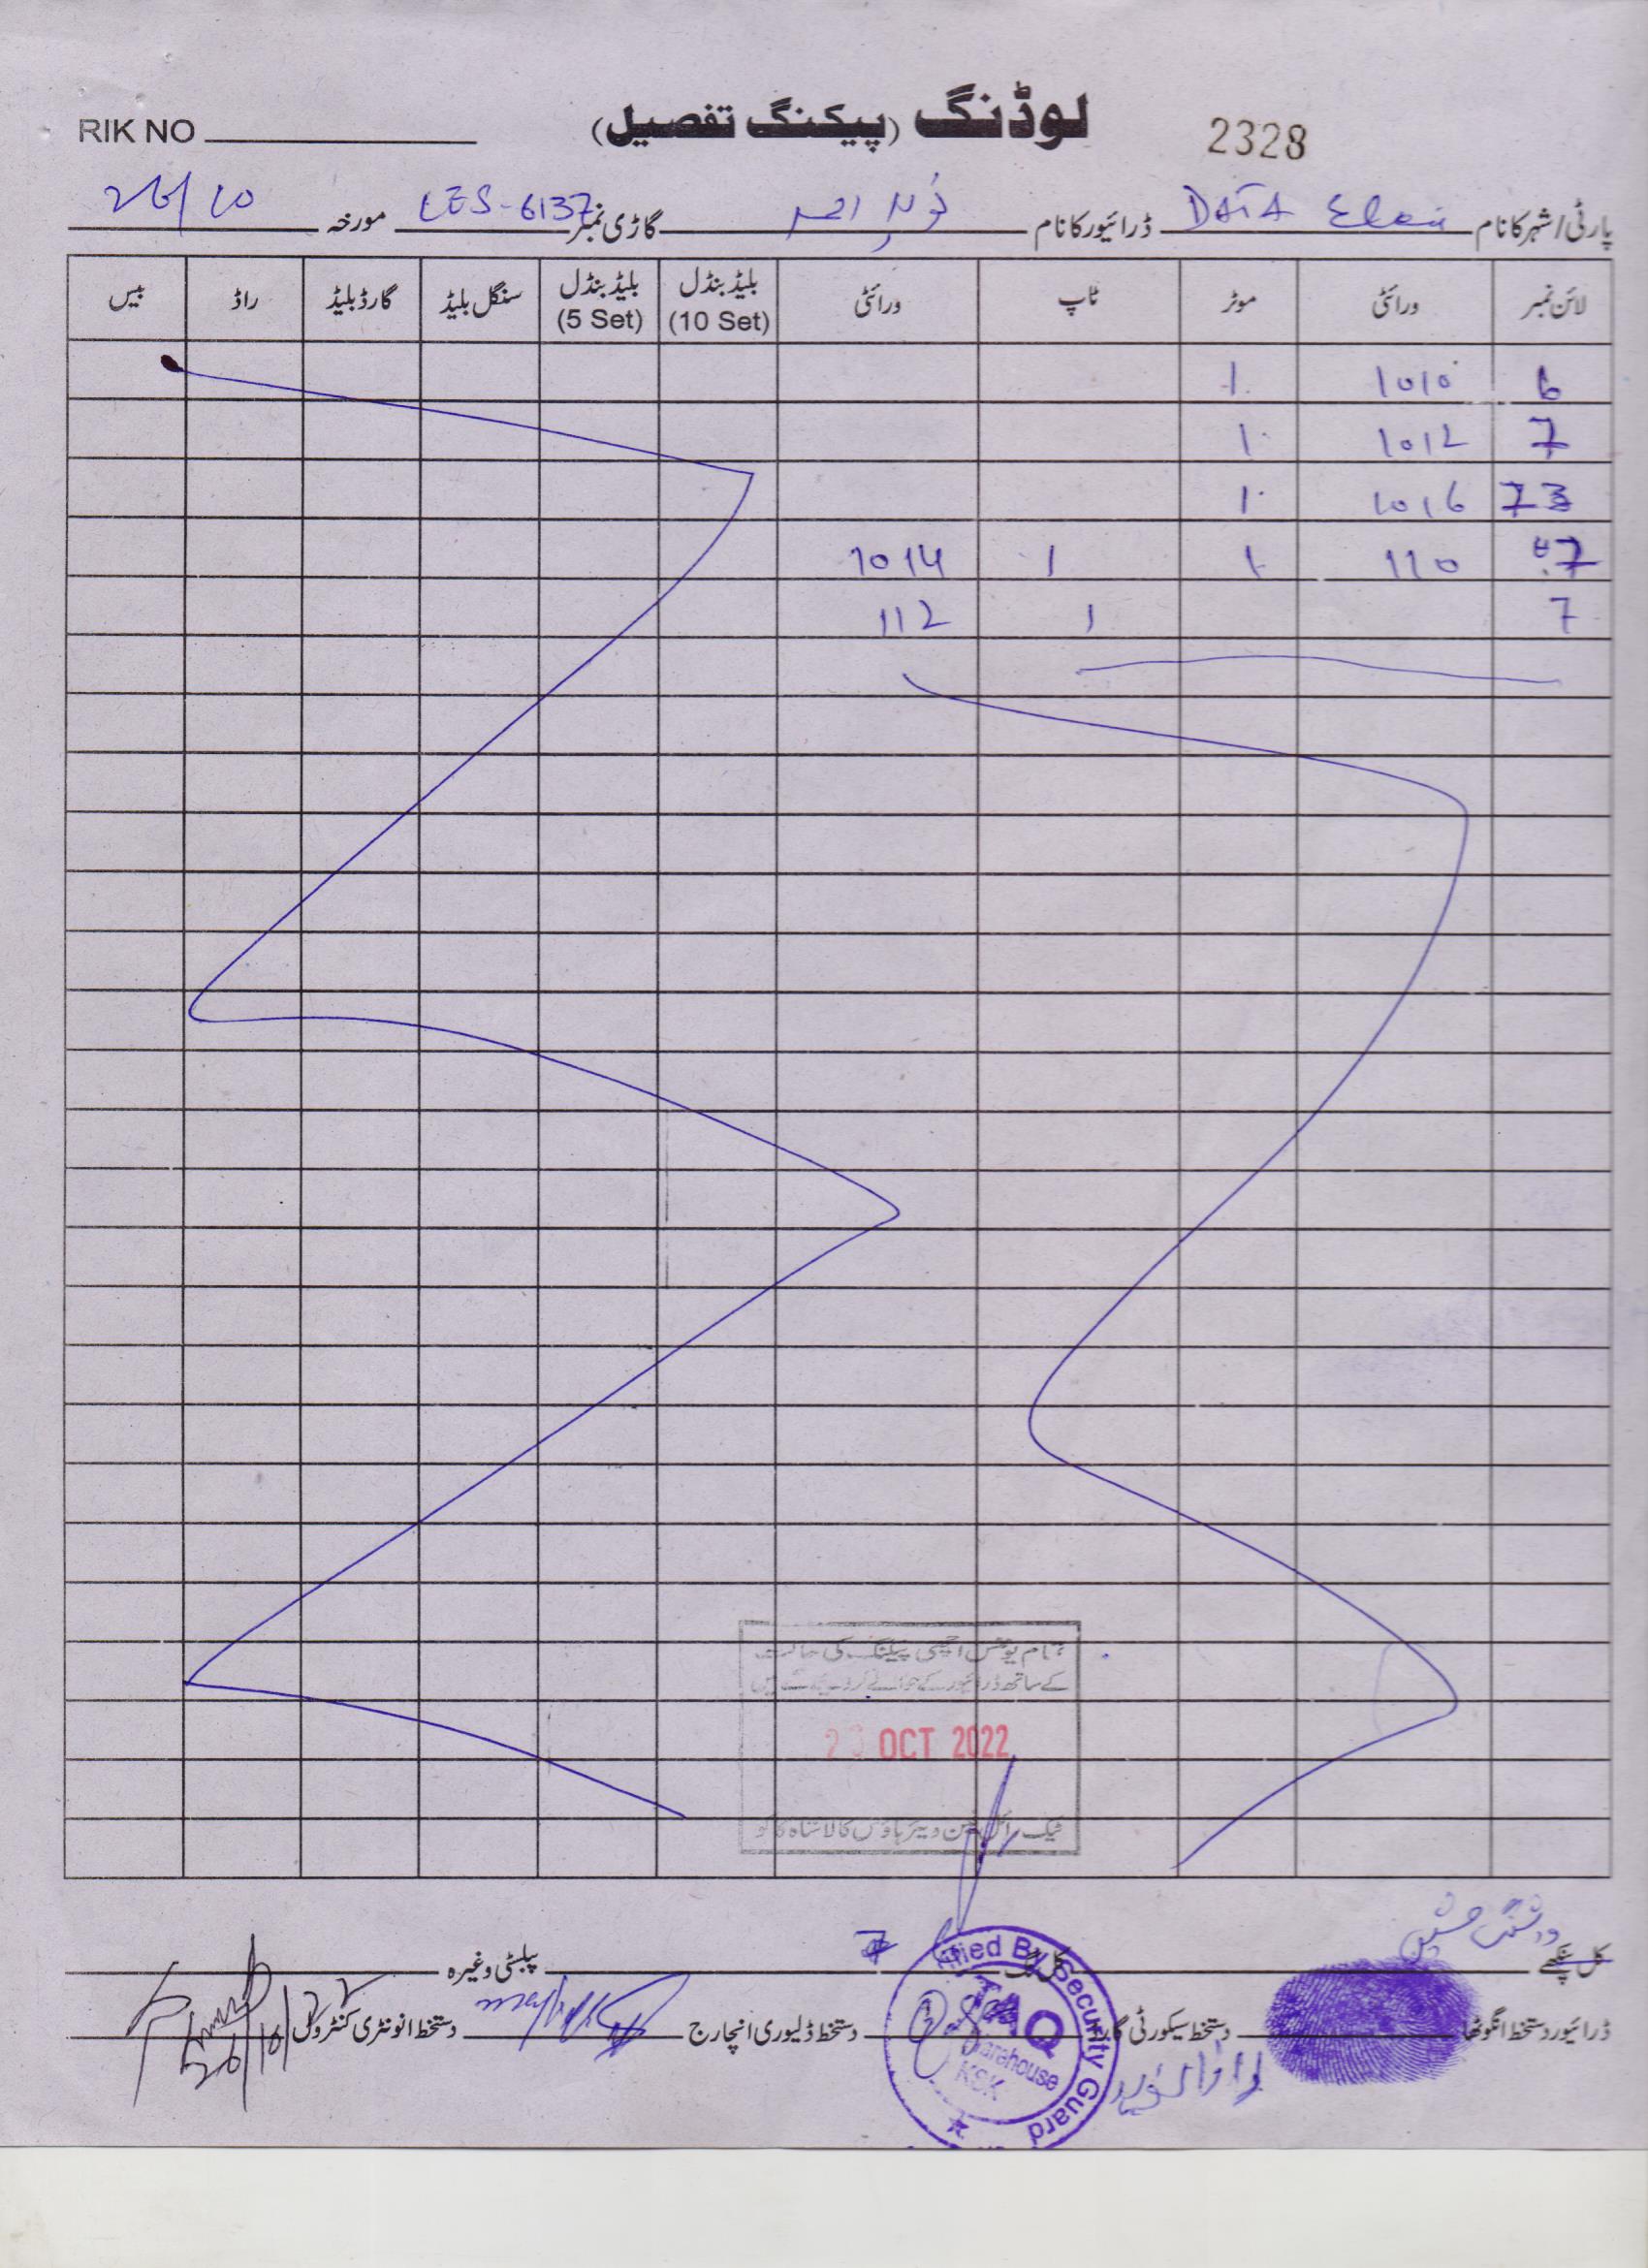 RIK NO لوڈنگ (پیکنگ تفصیل) 2328
پارٹی/شہر کا نام DATA ڈرائیور کا نام گاڑی نمبر LES-6137 مورخہ 26/10
لائن نمبر ورائٹی موٹر ٹاپ ورائٹی بلیڈ بنڈل (10 Set) بلیڈ بنڈل (5 Set) سنگل بلیڈ گارڈ بلیڈ راڈ بیس
6 1010 1
7 1012 1
7 1016 1
7 110 1 1 1014
7 1 112
تمام یونٹس اچھی پیکنگ کی حالت
کے ساتھ ڈرائیور کے حوالے کر دیئے گئے ہیں
OCT 2022
واشنگ مشین
کل پنکھے 7 پبلسٹی وغیرہ
ڈرائیور دستخط انگوٹھا دستخط سیکورٹی گارڈ دستخط ڈلیوری انچارج دستخط انونٹری کنٹرول
By Security Guard
Warehouse
KSK
26/10/22